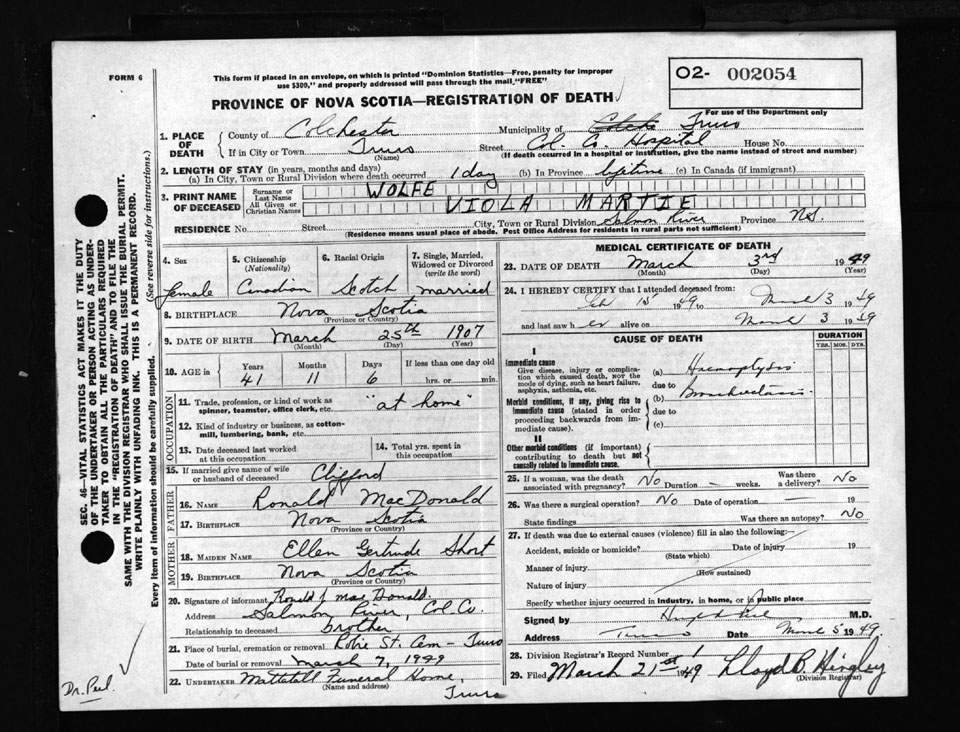 FORM 6
This form if placed in an envelope, on which is printed "Dominion Statistics—Free, penalty for improper
use $300," and properly addressed will pass through the mail "FREE"
O2- 002054
PROVINCE OF NOVA SCOTIA—REGISTRATION OF DEATH
For use of the Department only
1. PLACE OF DEATH County of Colchester Municipality of Truro
If in City or Town Truro (Name) Street Col. Co. Hospital House No.
(If death occurred in a hospital or institution, give the name instead of street and number)
2. LENGTH OF STAY (in years, months and days)
(a) In City, Town or Rural Division where death occurred 1 day (b) In Province lifetime (c) In Canada (if immigrant)
3. PRINT NAME OF DECEASED Surname or Last Name WOLFE
All Given or Christian Names VIOLA MARTIE
RESIDENCE No. Street City, Town or Rural Division Salmon River Province N.S.
(Residence means usual place of abode. Post Office Address for residents in rural parts not sufficient)
4. Sex female
5. Citizenship (Nationality) Canadian
6. Racial Origin Scotch
7. Single, Married, Widowed or Divorced (write the word) married
8. BIRTHPLACE Nova Scotia
(Province or Country)
9. DATE OF BIRTH March 25th 1907
(Month) (Day) (Year)
10. AGE in Years 41 Months 11 Days 6 If less than one day old hrs. or min.
OCCUPATION
11. Trade, profession, or kind of work as spinner, teamster, office clerk, etc. "at home"
12. Kind of industry or business, as cotton-mill, lumbering, bank, etc.
13. Date deceased last worked at this occupation
14. Total yrs. spent in this occupation
15. If married give name of wife or husband of deceased Clifford
FATHER
16. NAME Ronald MacDonald
17. BIRTHPLACE Nova Scotia
(Province or Country)
MOTHER
18. MAIDEN NAME Ellen Gertrude Short
19. BIRTHPLACE Nova Scotia
(Province or Country)
20. Signature of informant Ronald J MacDonald.
Address Salmon River, Col. Co.
Relationship to deceased brother
21. Place of burial, cremation or removal Robie St. Cem - Truro
Date of burial or removal March 7, 1949
22. UNDERTAKER Mattatall Funeral Home, Truro
(Name and address)
MEDICAL CERTIFICATE OF DEATH
23. DATE OF DEATH March 3rd 1949
(Month) (Day) (Year)
24. I HEREBY CERTIFY that I attended deceased from:
1949 to March 3 1949
and last saw her alive on March 3 1949
CAUSE OF DEATH
DURATION
YRS. MOS. DYS.
I
Immediate cause
Give disease, injury or complication which caused death, NOT the mode of dying, such as heart failure, asphyxia, asthenia, etc.
(a) Haemoptysis
due to
Morbid conditions, if any, giving rise to immediate cause (stated in order proceeding backwards from immediate cause).
(b) Bronchiectasis
due to
(c)
II
Other morbid conditions (if important) contributing to death but not causally related to immediate cause.
25. If a woman, was the death associated with pregnancy? No Duration — weeks. Was there a delivery? No
26. Was there a surgical operation? No Date of operation — 19
State findings Was there an autopsy? No
27. If death was due to external causes (violence) fill in also the following:
Accident, suicide or homicide? Date of injury 19
(State which)
Manner of injury
(How sustained)
Nature of injury
Specify whether injury occurred in industry, in home, or in public place
Signed by M.D.
Address Truro Date March 5 1949.
28. Division Registrar's Record Number 1
29. Filed March 21st 1949 Lloyd B. Hingley
(Division Registrar)
SEC. 46—VITAL STATISTICS ACT MAKES IT THE DUTY
OF THE UNDERTAKER OR PERSON ACTING AS UNDERTAKER TO OBTAIN ALL THE PARTICULARS REQUIRED
IN THE "REGISTRATION OF DEATH" AND TO FILE THE
SAME WITH THE DIVISION REGISTRAR WHO SHALL ISSUE THE BURIAL PERMIT.
WRITE PLAINLY WITH UNFADING INK. THIS IS A PERMANENT RECORD.
Every item of information should be carefully supplied. (See reverse side for instructions.)
Dr. Peel.